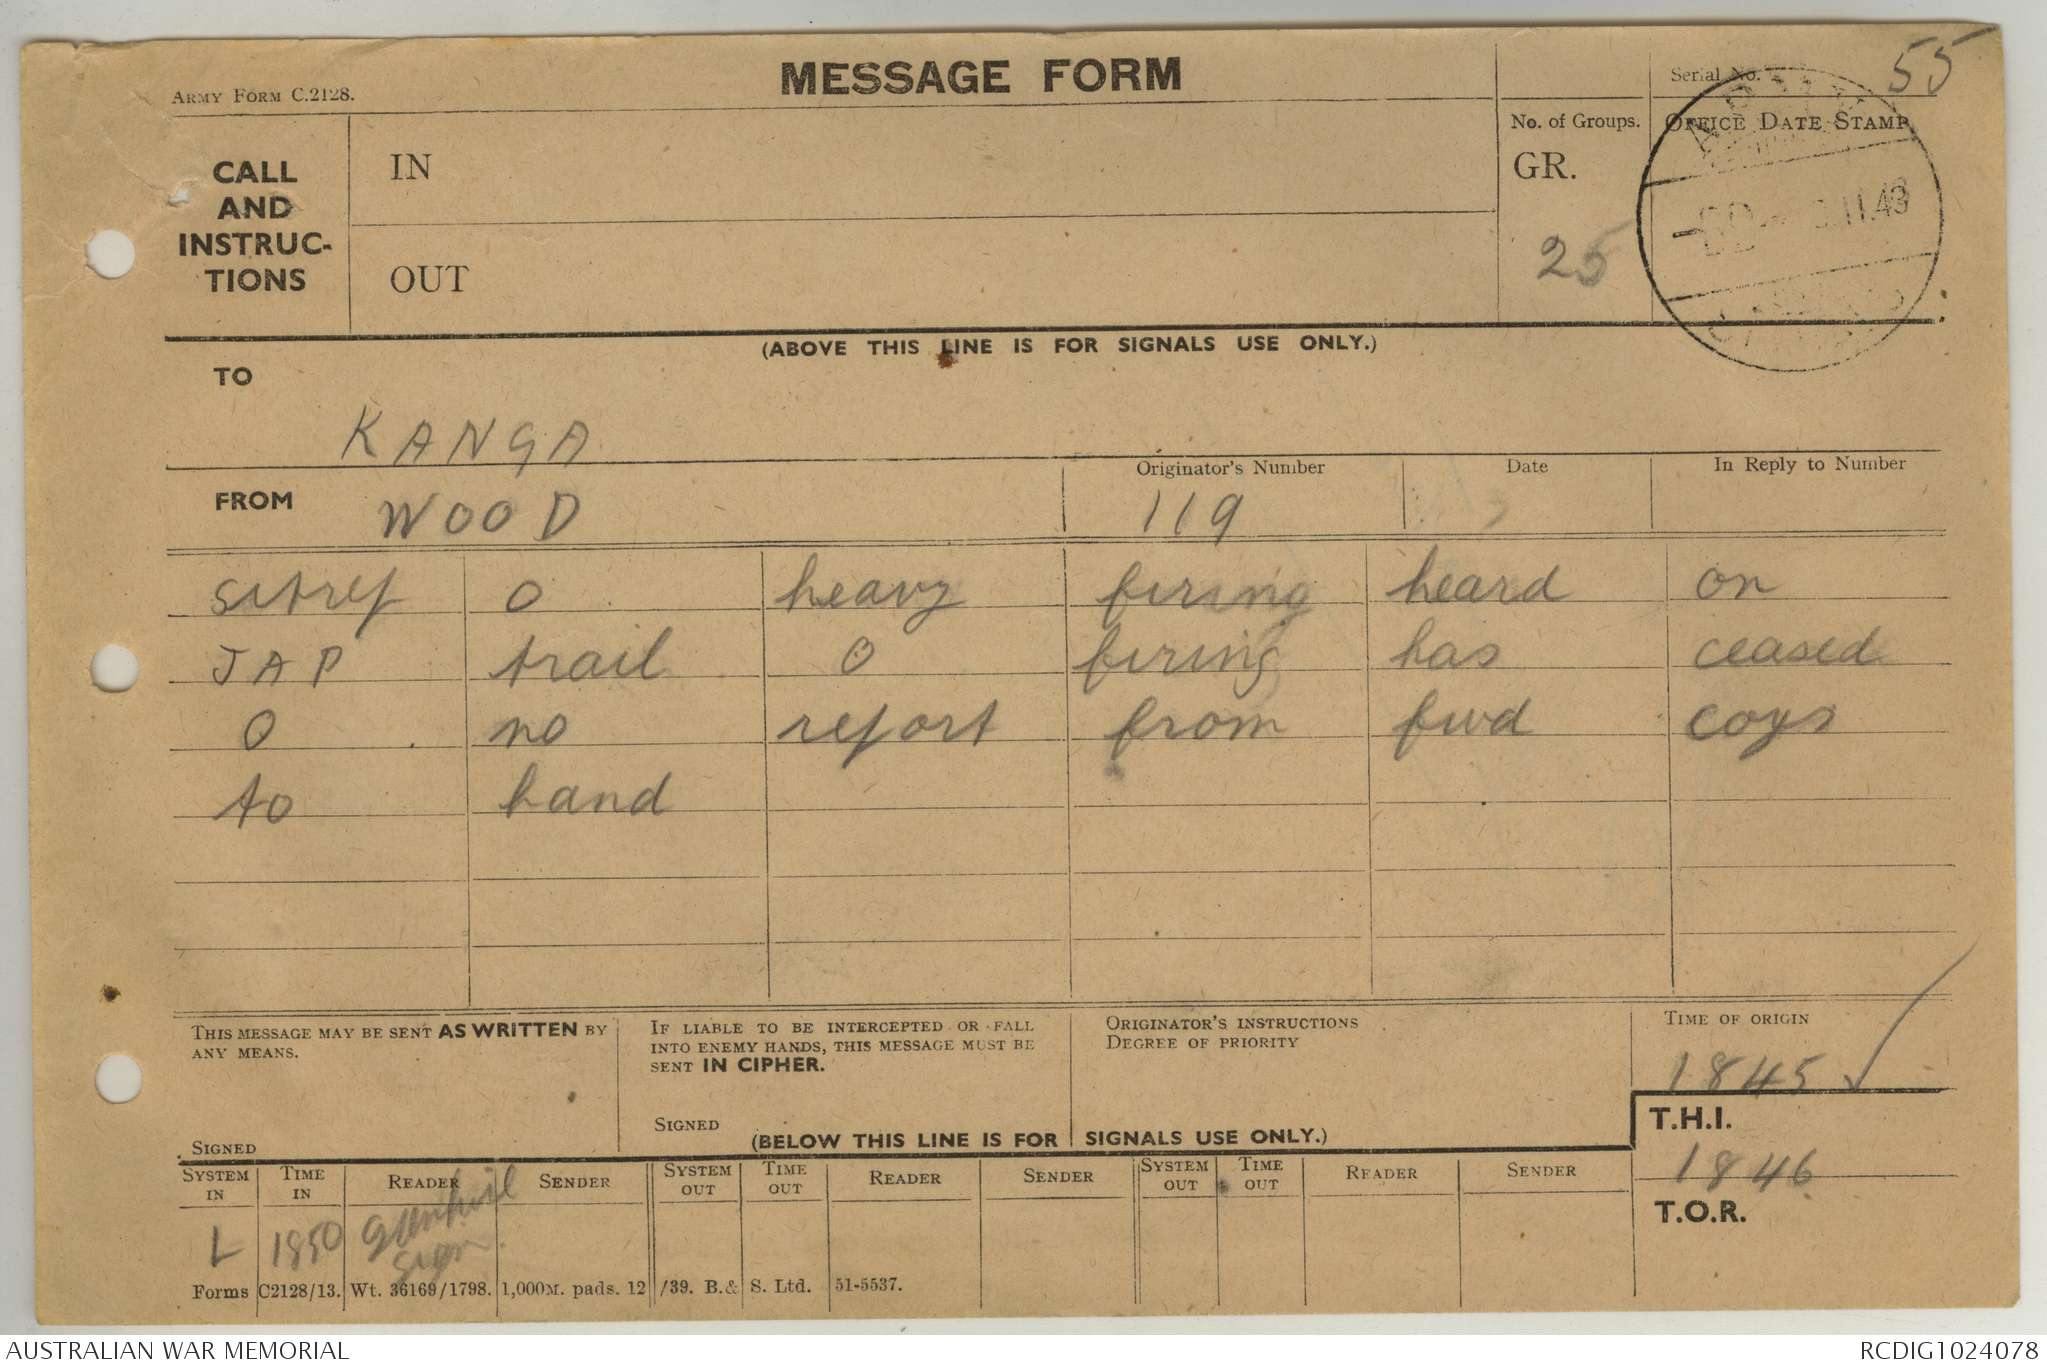 MESSAGE FORM
Army Form C.2128.
Serial No. 55
CALL AND INSTRUC-TIONS
IN
OUT
No. of Groups.
GR.
25
Office Date Stamp
11.43
(ABOVE THIS LINE IS FOR SIGNALS USE ONLY.)
TO
KANGA
FROM
WOOD
Originator's Number
119
Date
In Reply to Number
sitrep O heavy firing heard on
JAP trail O firing has ceased
O no report from fwd coys
to hand
This message may be sent AS WRITTEN by any means.
Signed
If liable to be intercepted or fall into enemy hands, this message must be sent IN CIPHER.
Signed
Originator's Instructions
Degree of Priority
Time of Origin
1845 ✓
(BELOW THIS LINE IS FOR SIGNALS USE ONLY.)
T.H.I.
1846
T.O.R.
System In Time In Reader Sender System Out Time Out Reader Sender System Out Time Out Reader Sender
L 1850
Sigm.
Forms C2128/13. Wt. 36169/1798. 1,000M. pads. 12/39. B.& S. Ltd. 51-5537.
AUSTRALIAN WAR MEMORIAL
RCDIG1024078